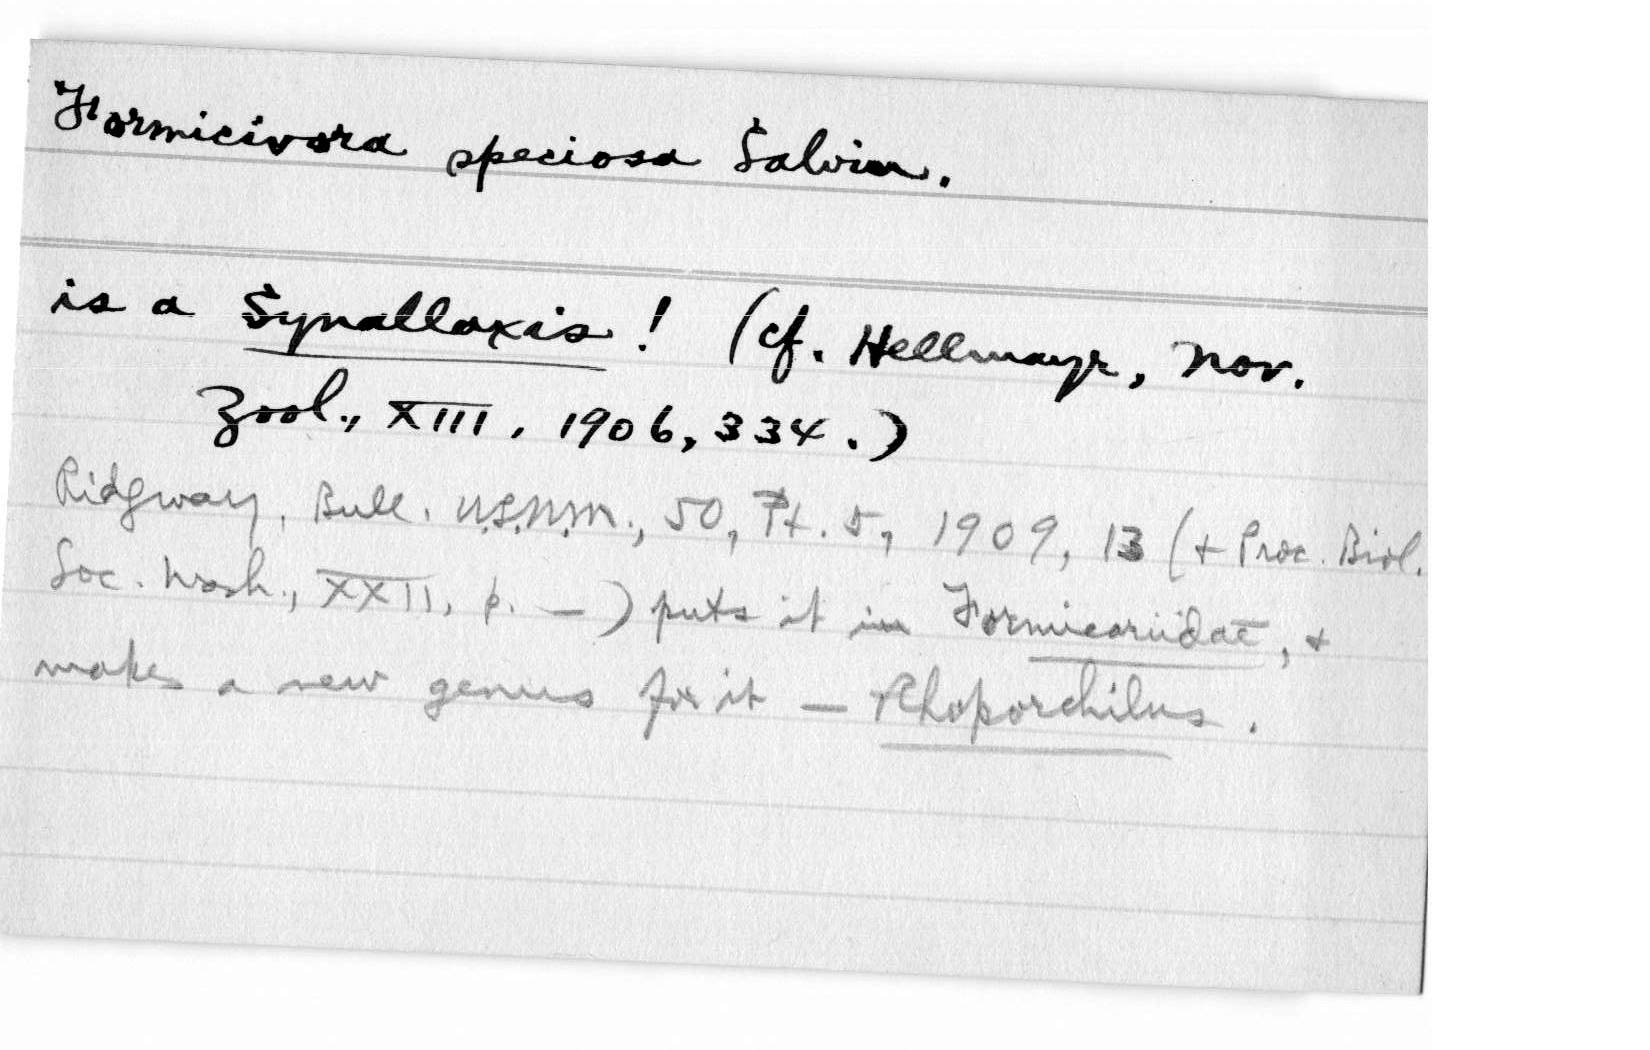 Formicivora speciosa Salvin.
is a Synallaxis! (cf. Hellmayr, Nov.
Zool., XIII, 1906, 334.)
Ridgway, Bull. U.S.N.M., 50, Pt. 5, 1909, 13 (+ Proc. Biol.
Soc. Wash., XXII, p. —) puts it in Formicariidae, +
makes a new genus for it — Rhoporchilus.